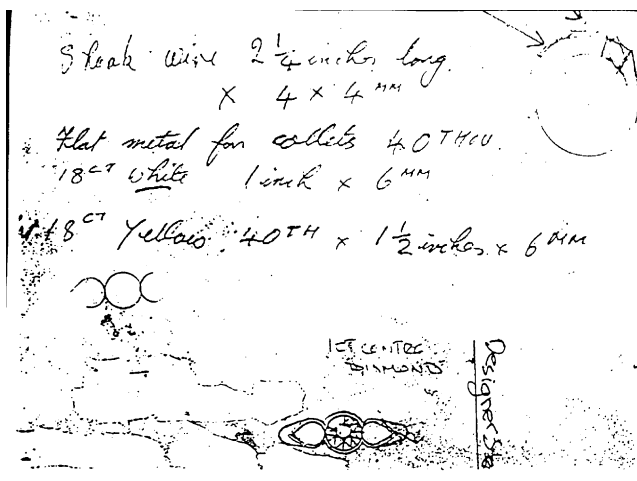 Shank wire 2 1/4 inches long.
x 4 x 4 MM
Flat metal for collets 40 THOU.
18CT White 1 inch x 6 MM
18CT Yellow. 40TH x 1 1/2 inches x 6 MM
1CT CENTRE
DIAMOND
Designer